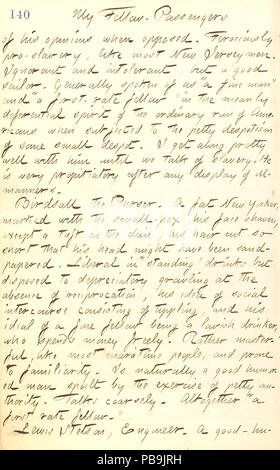 140
My Fellow-Passengers
of his opinions when opposed. Ferociously
pro-slavery, like most New Jerseymen.
Ignorant and intolerant, but a good
sailor. Generally spoken of as "a fine man"
and a "first-rate fellow" in the meanly
deferential spirit of the ordinary run of Ame-
ricans when subjected to the petty despotism
of some small despot. I get along pretty
well with him until we talk of slavery. He
is very propitiatory after any display of ill-
manners.
Birdsall the Purser. A fat New Yorker,
marked with the small-pox, his face shaven,
except a tuft on the chin, his hair cut so
short that his head might have been sand-
papered. Liberal in "standing" drink but
disposed to depreciatory growling at the
absence of reciprocation, his idea of social
intercourse consisting of tippling, and his
ideal of a fine fellow being a lavish drinker,
who spends money freely. Rather master-
ful, like most            people, and prone
to familiarity. Is naturally a good humor-
ed man spoilt by the exercise of petty au-
thority. Talks coarsely. Altogether "a
first rate fellow."
Lewis Stetson, Engineer. A good-hu-
alamy
Image ID: PB9JRH
www.alamy.com